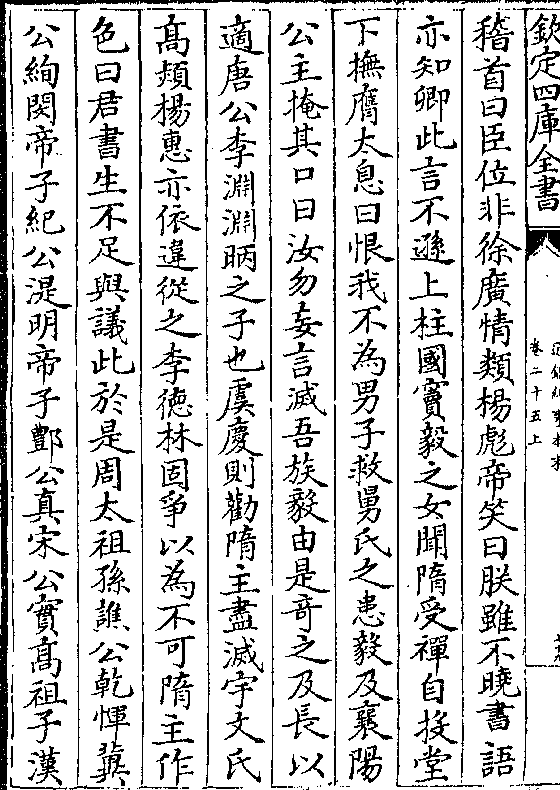 欽定四庫全書
卷二十五上
稽首曰臣位非徐廣情類楊彪帝笑曰朕雖不曉書語
亦知卿此言不遜上柱國竇毅之女聞隋受禪自投堂
下撫膺太息曰恨我不為男子救舅氏之患毅及襄陽
公主掩其口曰汝勿妄言滅吾族毅由是竒之及長以
適唐公李淵淵昞之子也虞慶則勸隋主盡滅宇文氏
髙熲楊惠亦依違從之李徳林固爭以為不可隋主作
色曰君書生不足與議此於是周太祖孫譙公乾惲冀
公絢閔帝子紀公湜明帝子酆公真宋公實髙祖子漢